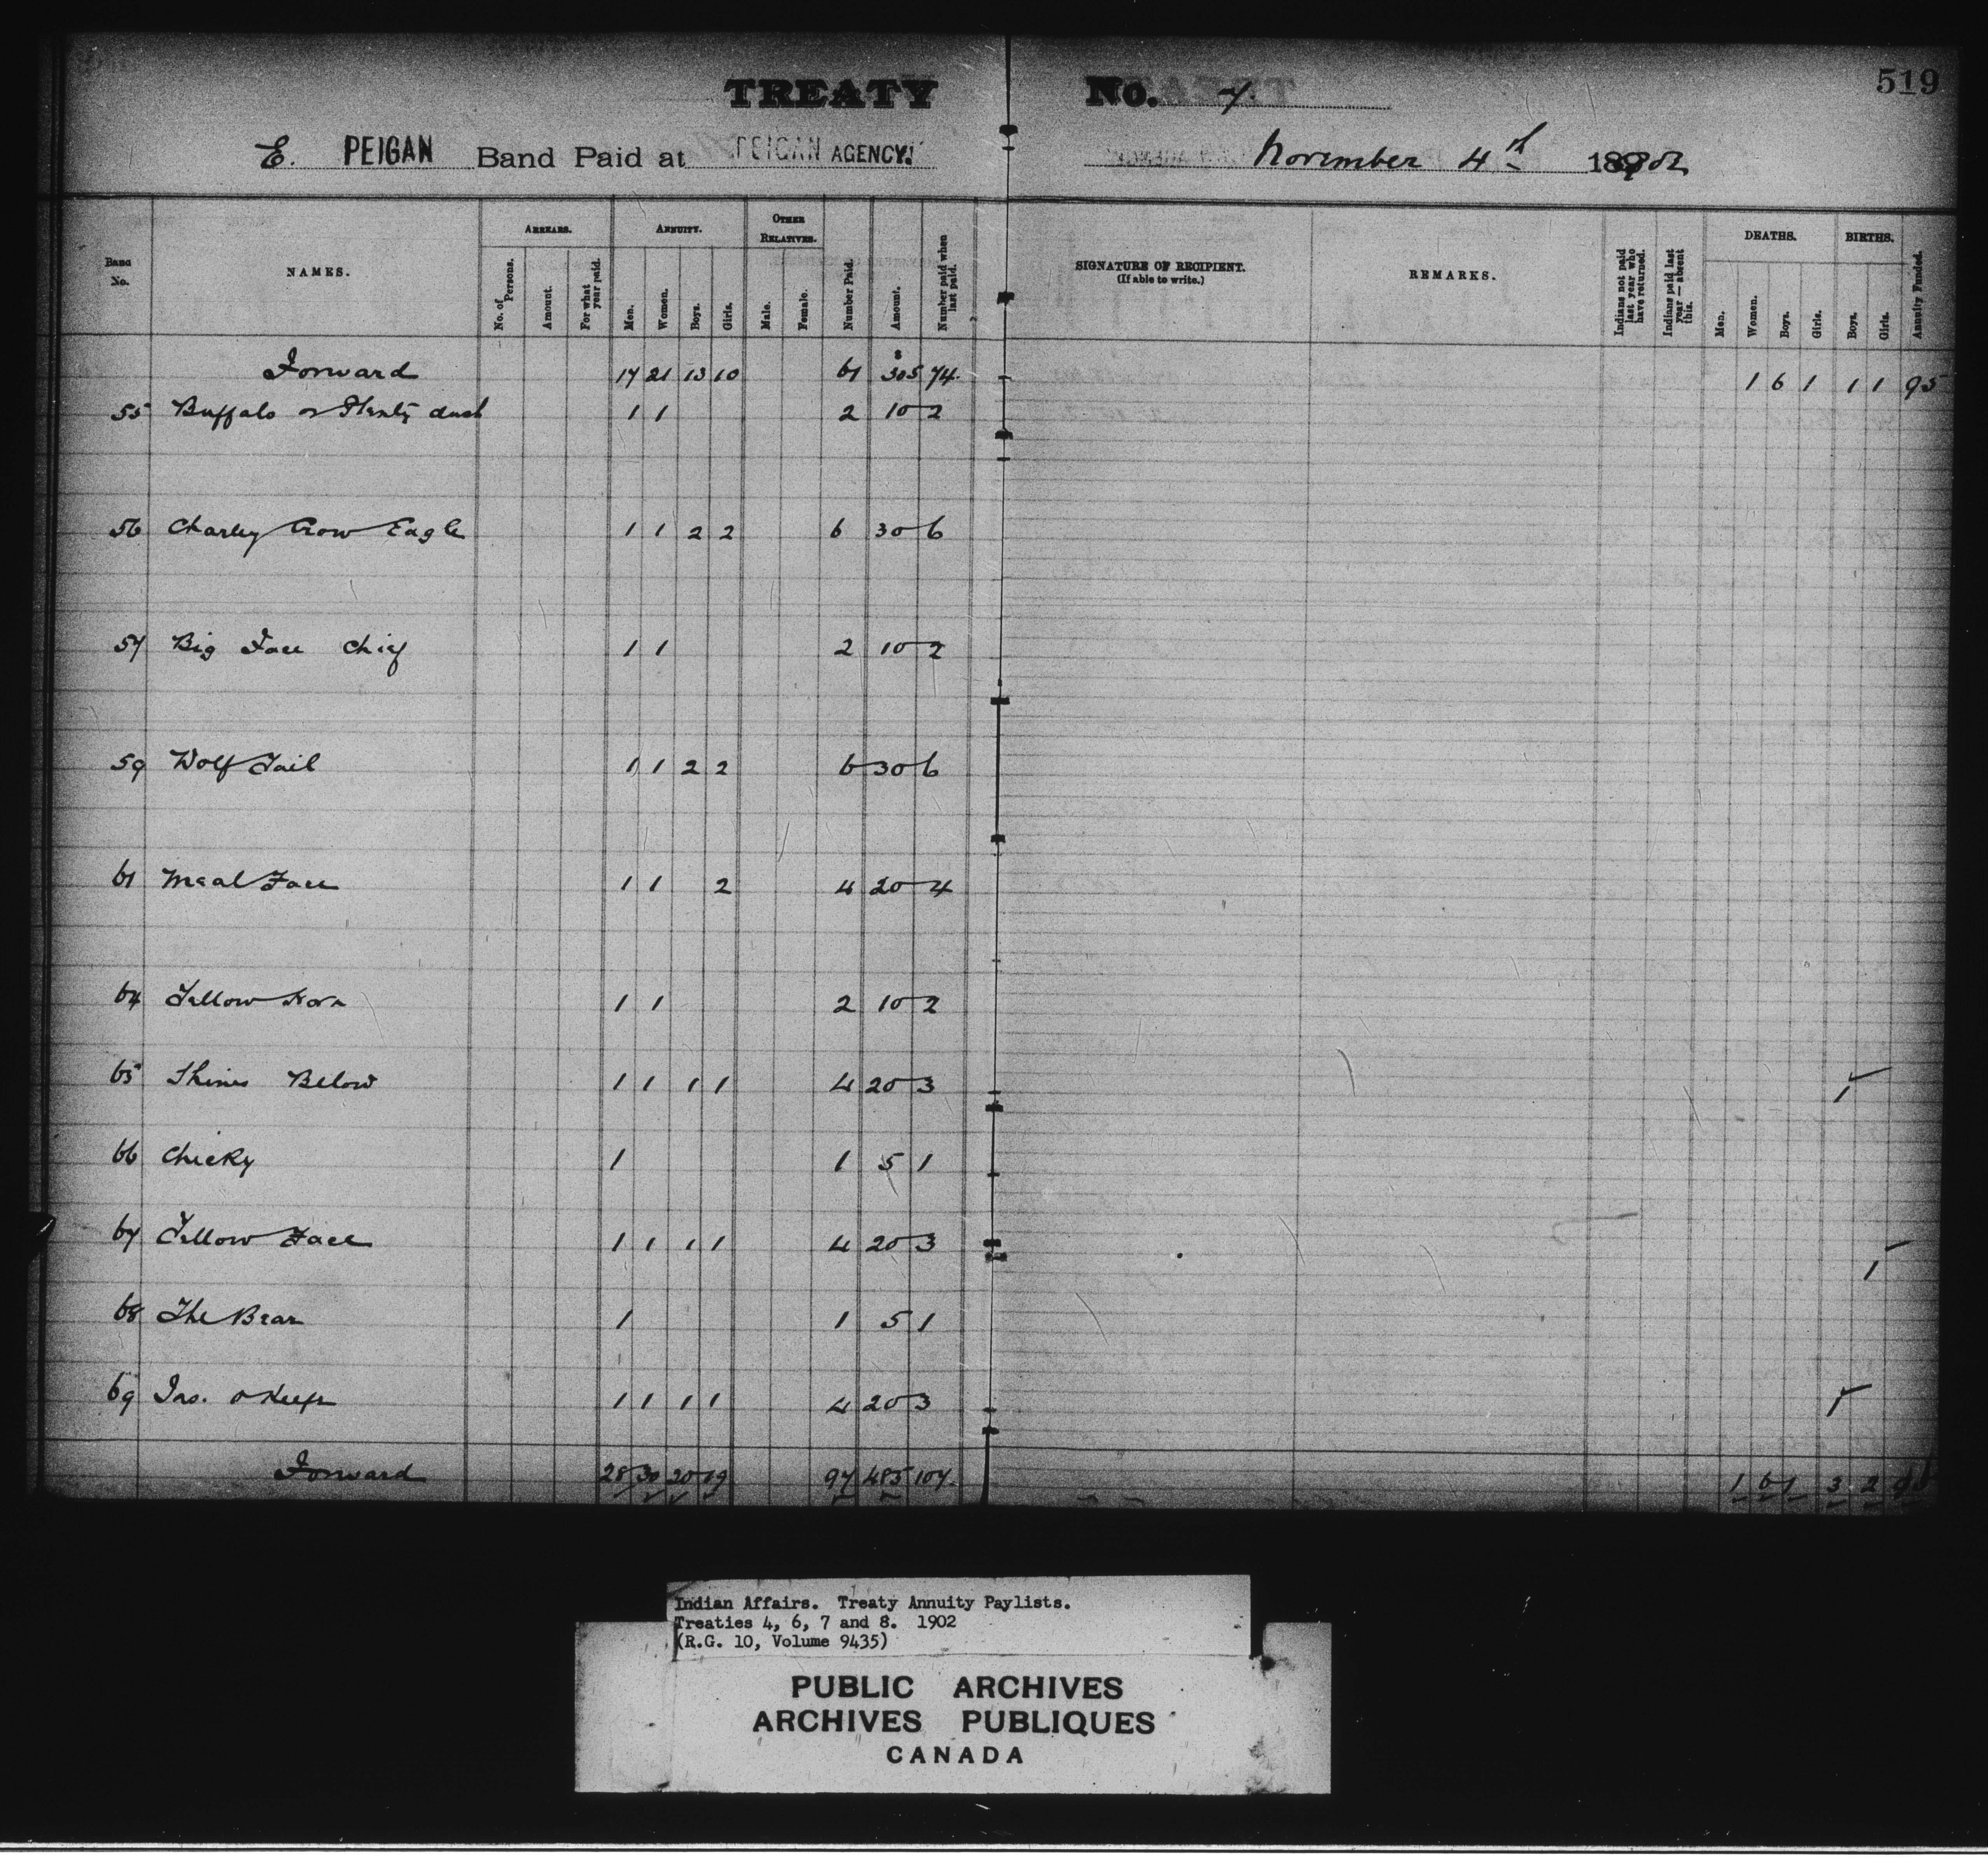 519
TREATY No. 7
E. PEIGAN Band Paid at PEIGAN AGENCY. November 4th 1902
Band No. NAMES. ARREARS. No. of Persons. Amount. For what year paid. ANNUITY. Men. Women. Boys. Girls. OTHER RELATIVES. Male. Female. Number Paid. Amount. Number paid when last paid. SIGNATURE OF RECIPIENT. (If able to write.) REMARKS. Indians not paid last year who have returned. Indians paid last year—absent this. DEATHS. Men. Women. Boys. Girls. BIRTHS. Boys. Girls. Annuity Funded.
Forward 17 21 13 10 61 $305 74. 1 6 1 1 1 95
55 Buffalo or Plenty dust 1 1 2 10 2
56 Charley Crow Eagle 1 1 2 2 6 30 6
57 Big Face Chief 1 1 2 10 2
59 Wolf Tail 1 1 2 2 6 30 6
61 Meal Face 1 1 2 4 20 4
64 Yellow Horn 1 1 2 10 2
65 Shines Below 1 1 1 1 4 20 3 1
66 Chicky 1 1 5 1
67 Yellow Face 1 1 1 1 4 20 3 1
68 The Bear 1 1 5 1
69 Jas. O Keefe 1 1 1 1 4 20 3 1
Forward 28 30 20 19 97 485 107. 1 6 1 3 2
Indian Affairs. Treaty Annuity Paylists.
Treaties 4, 6, 7 and 8. 1902
(R.G. 10, Volume 9435)
PUBLIC ARCHIVES
ARCHIVES PUBLIQUES
CANADA